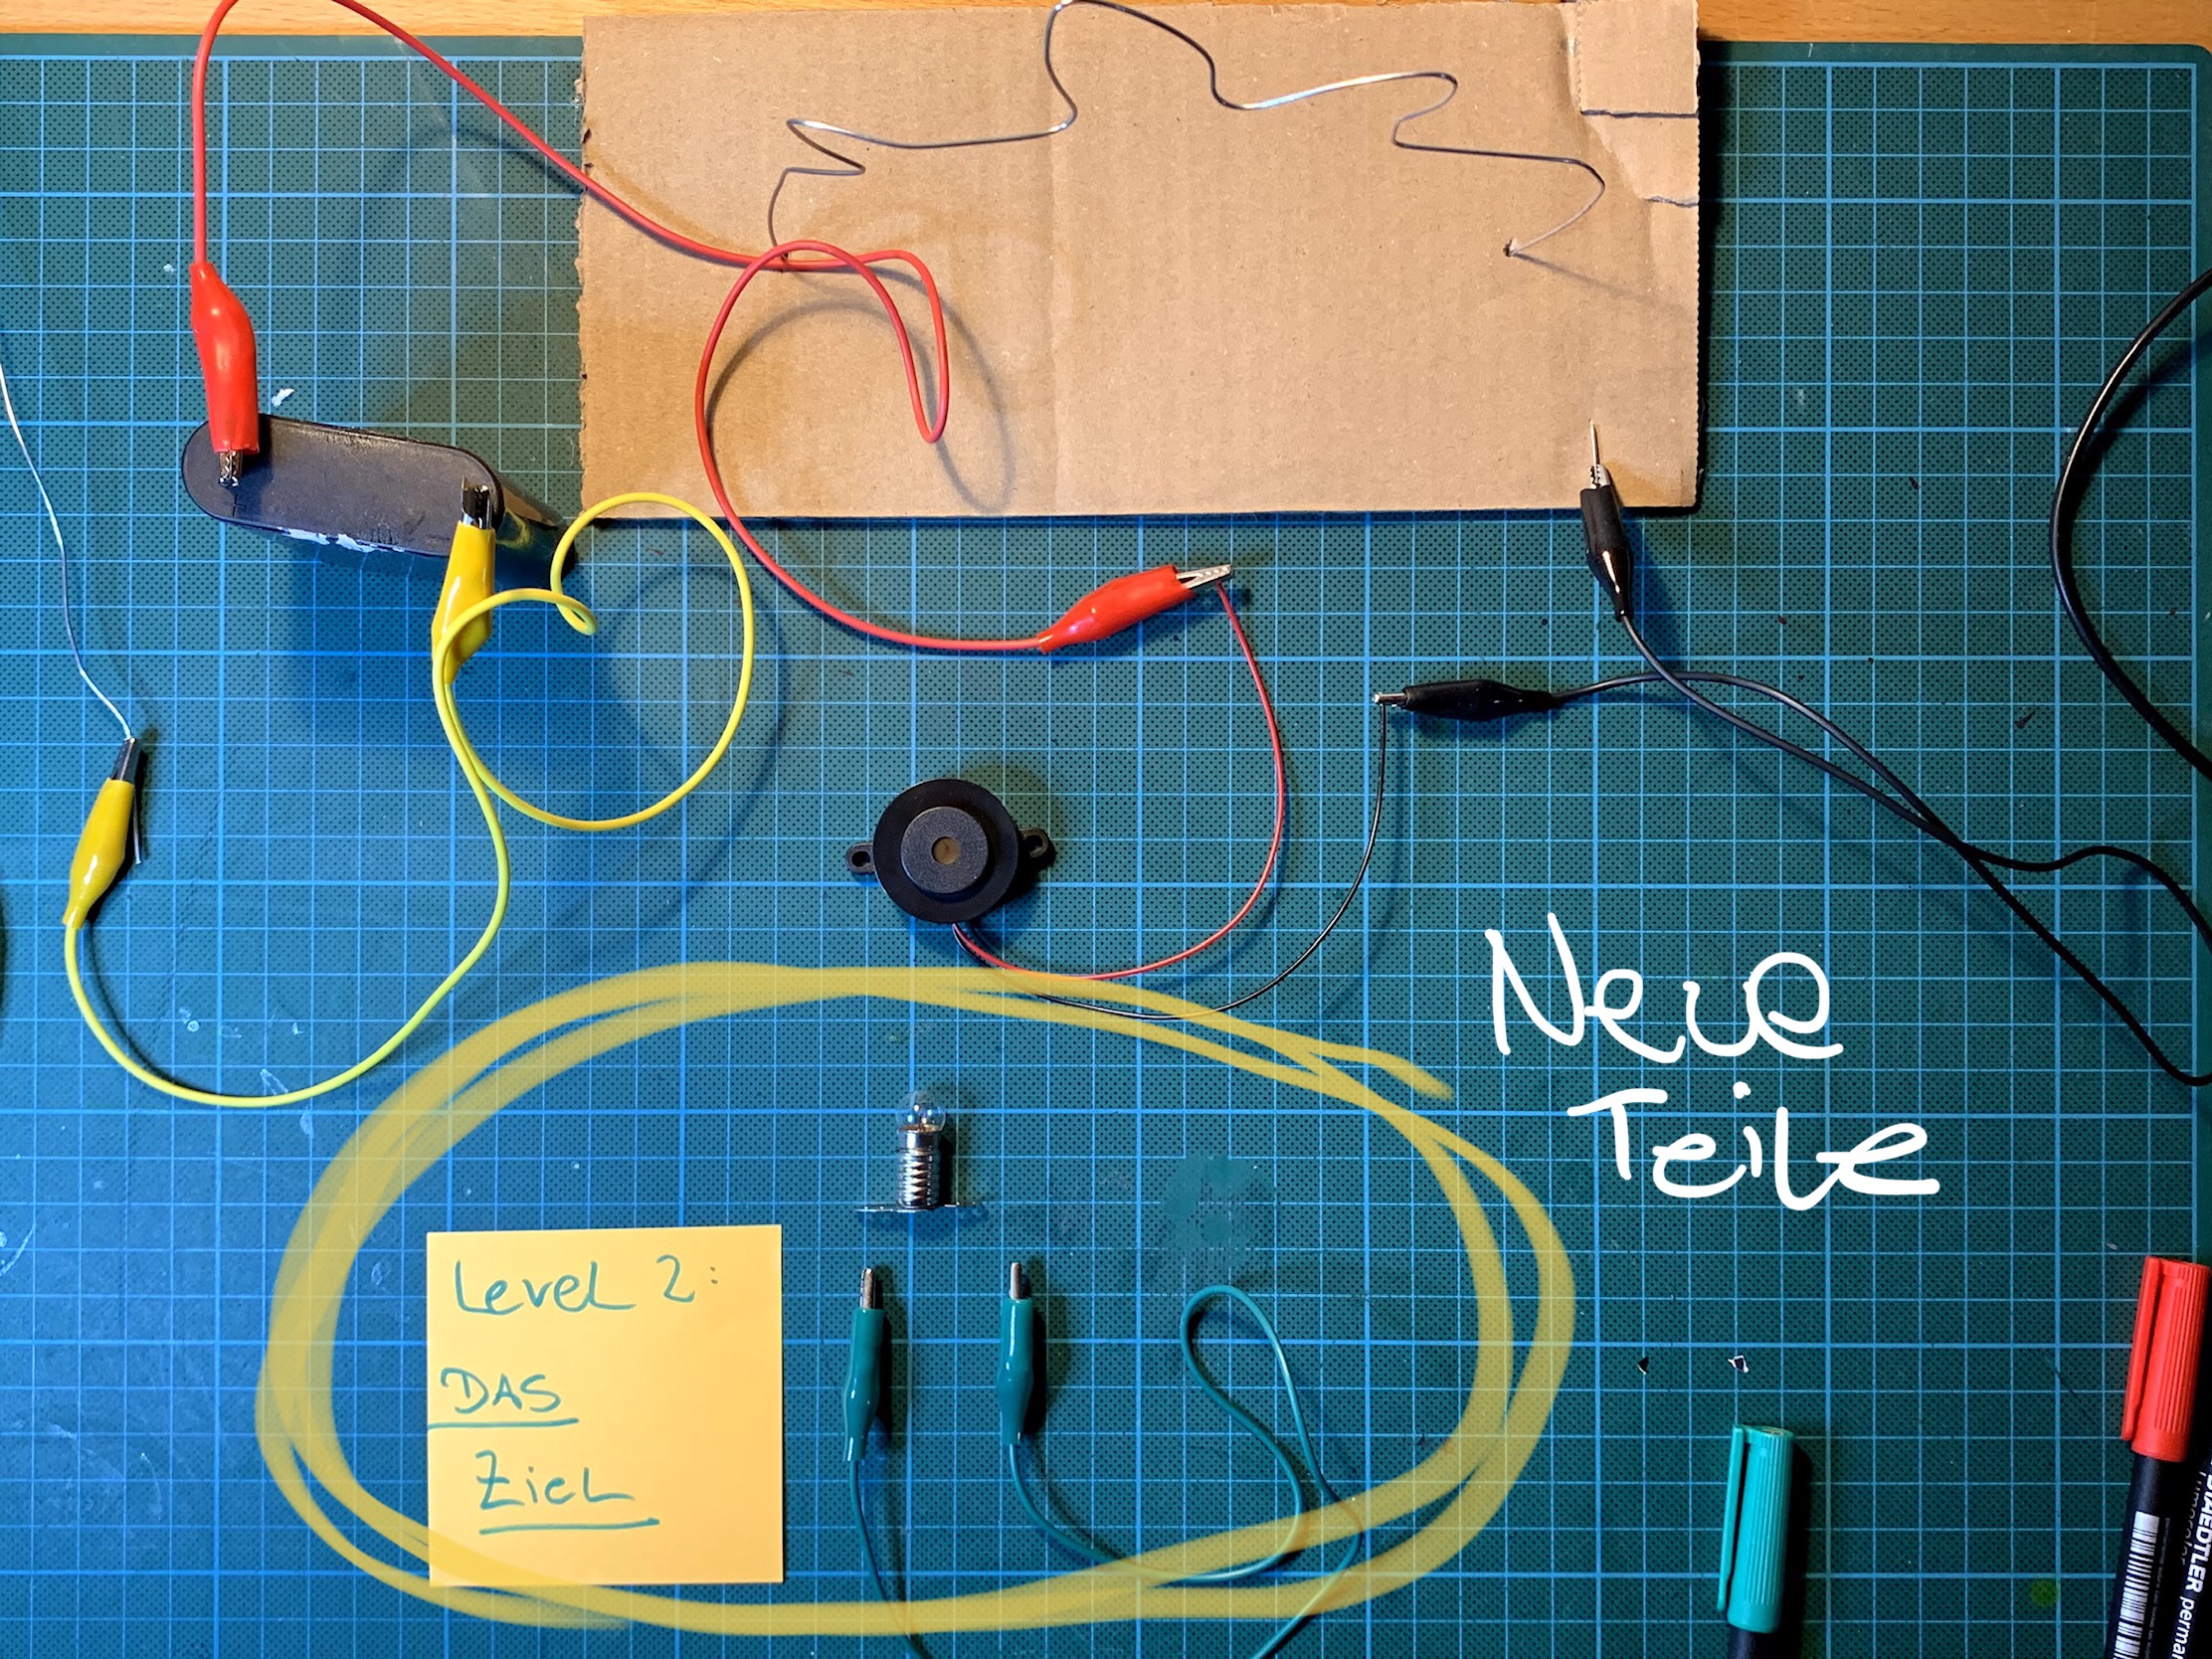 Neue
Teile
Level 2:
DAS
Ziel
STAEDTLER permanent